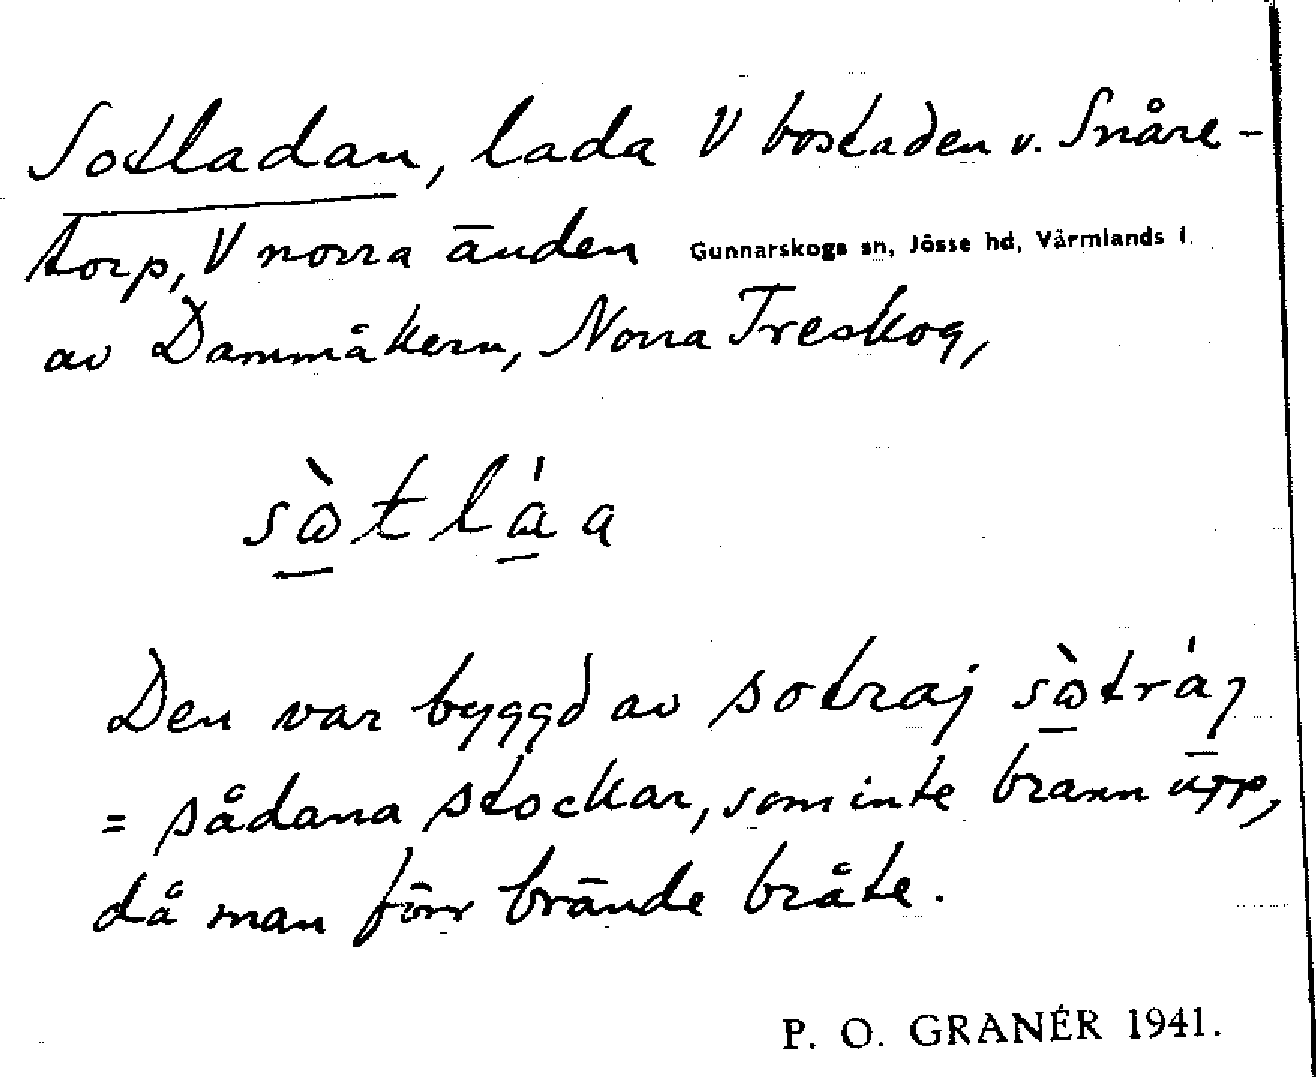 Sotladan, lada V bostaden v. Snåre-
torp, V norra änden Gunnarskogs sn, Jösse hd, Värmlands l.
av Dammåkern, Norra Treskog,
sὼtláa
Den var byggd av sotraj sὼtráj
= sådana stockar, som inte brann upp,
då man förr brände bråte.
P. O. GRANÉR 1941.